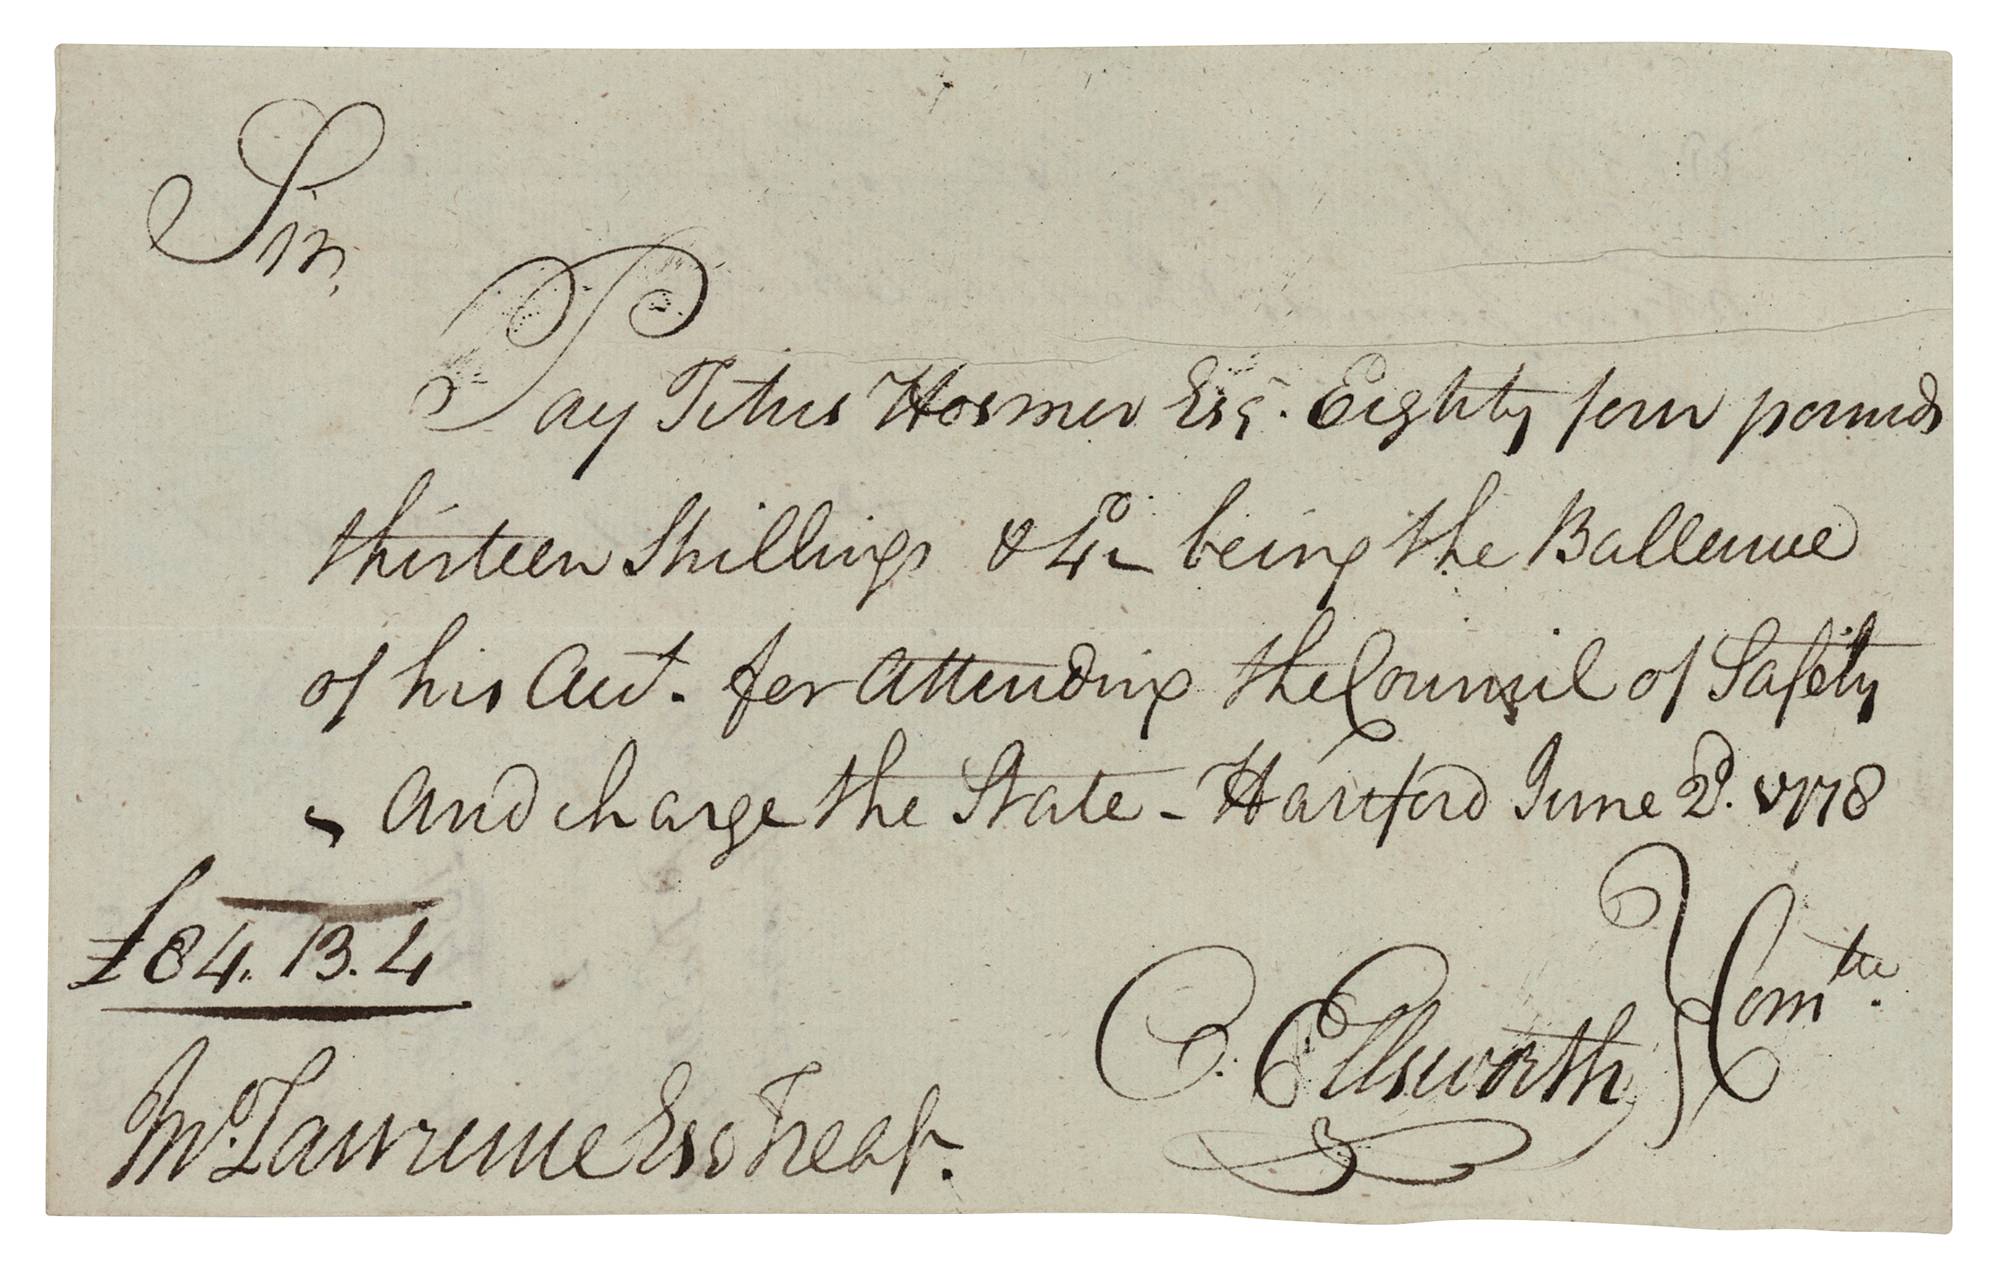 Sir,
Pay Titus Hosmer Esqr. Eighty four pounds
thirteen Shillings & 4d being the Ballence
of his Acct. for Attending the Council of Safety
and charge the State - Hartford June 2d. 1778
£84. 13. 4
O. Ellsworth } Comtte.
Mr. Lawrence Esqr Treasr.